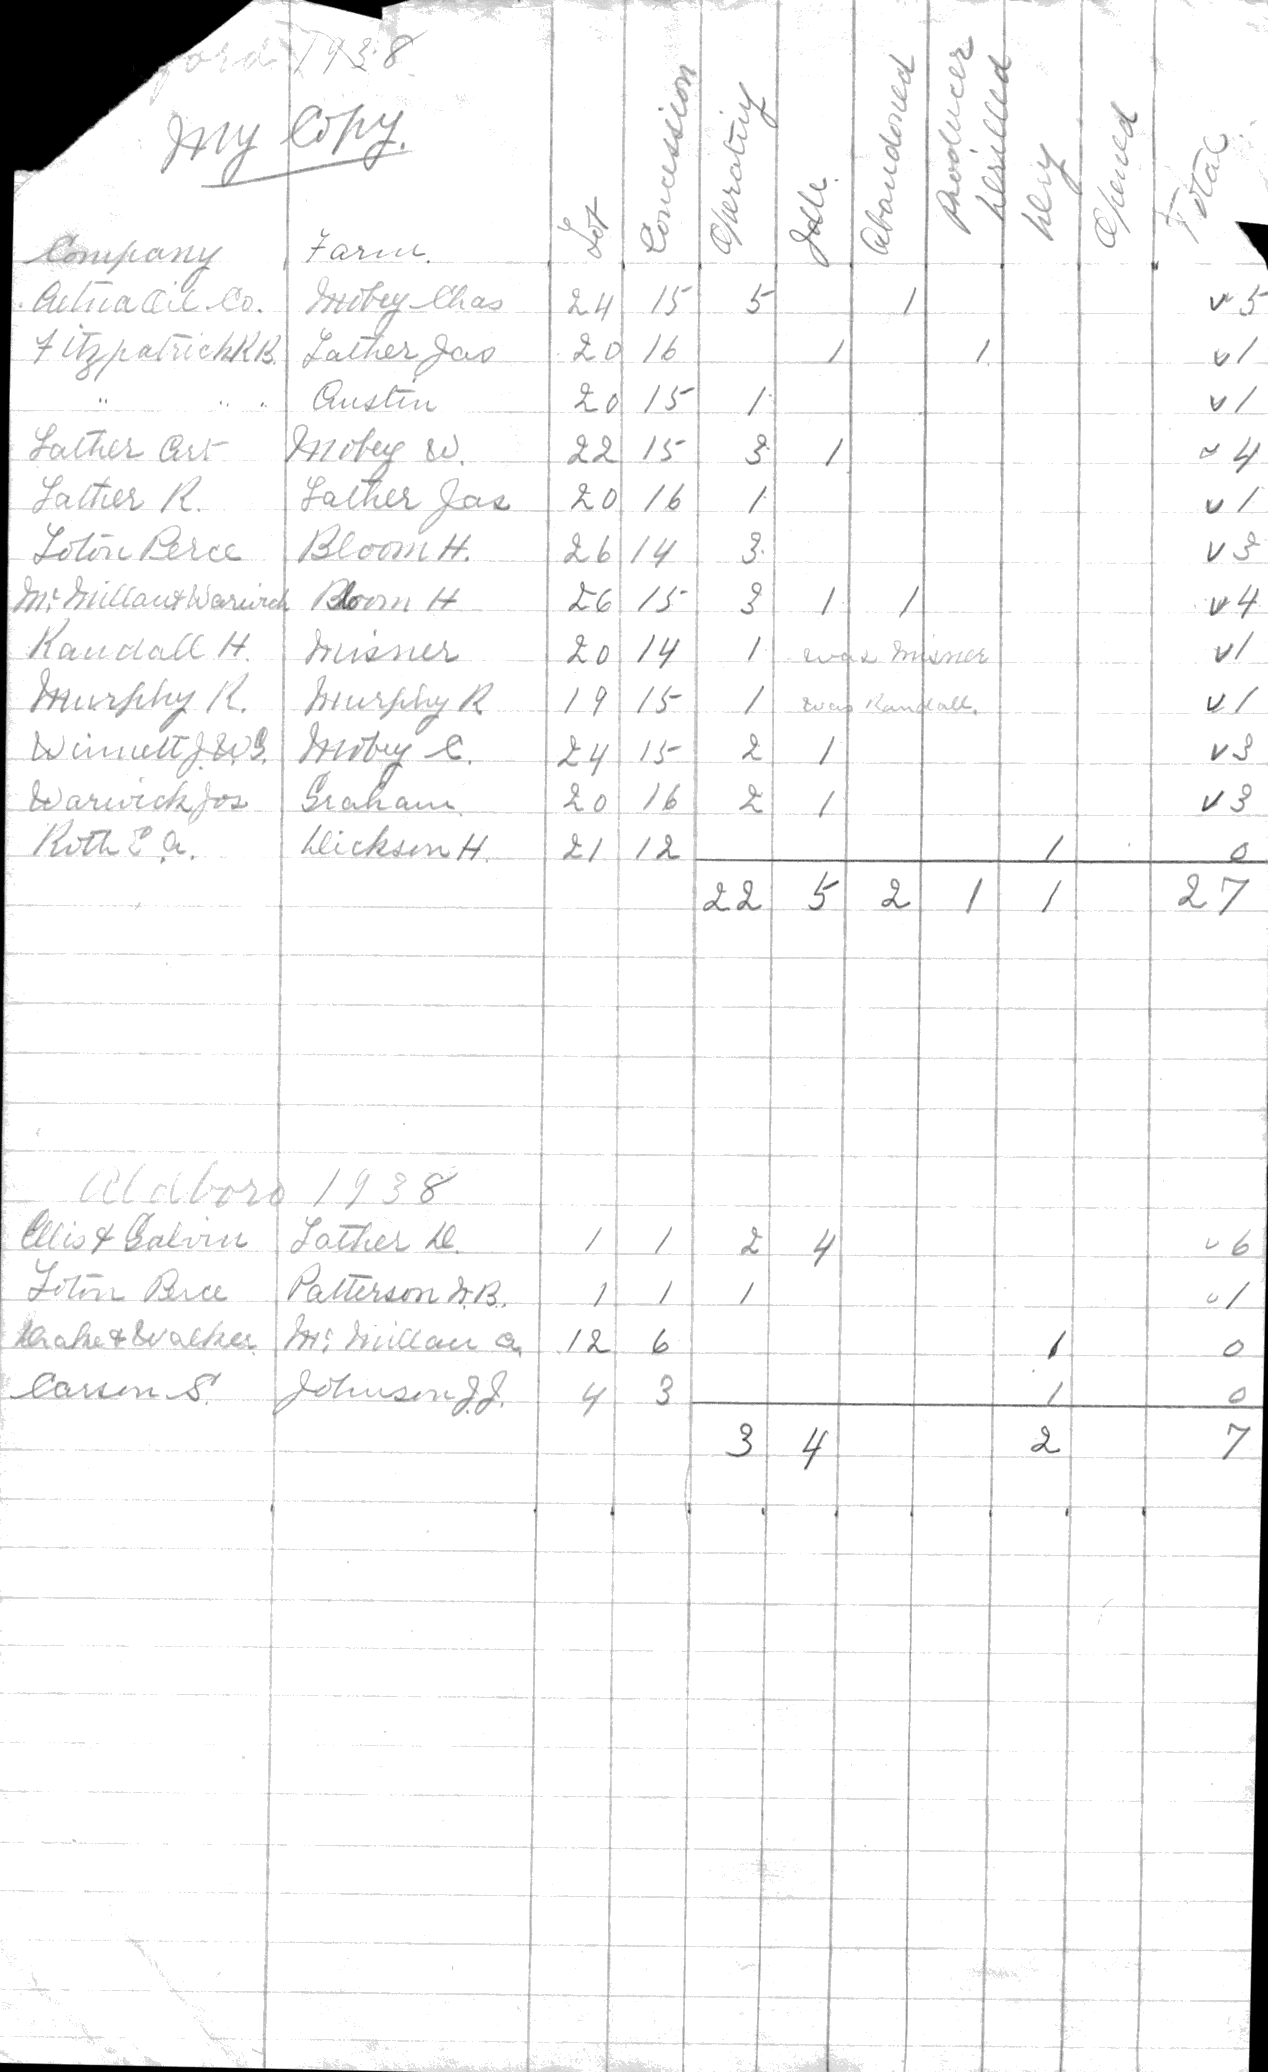 ford 1938
My Copy.
Company Farm. Lot Concession Operating Idle. Abandoned Producer Drilled Dry Opened Total
Aetna Oil Co. Mobey Chas 24 15 5 1 v 5
Fitzpatrick R.B. Lather Jas 20 16 1 1 v 1
" " " Austin 20 15 1 v 1
Lather Art Mobey W. 22 15 3 1 v 4
Lather R. Lather Jas 20 16 1 v 1
Loton Perce Bloom H. 26 14 3 v 3
Mc Millan & Warwick Bloom H 26 15 3 1 1 v 4
Randall H. Misner 20 14 1 was Misner v 1
Murphy R. Murphy R 19 15 1 was Randall. v 1
Winnett J.W.G. Mobey C. 24 15 2 1 v 3
Warwick Jos Graham 20 16 2 1 v 3
Roth E.A. Dickson H. 21 12 1 0
22 5 2 1 1 27
Aldboro 1938
Ellis & Galvin Lather D. 1 1 2 4 v 6
Loton Perce Patterson W.B. 1 1 1 v 1
Drake & Walker Mc Millan A. 12 6 1 0
Carson S. Johnson J.J. 4 3 1 0
3 4 2 7